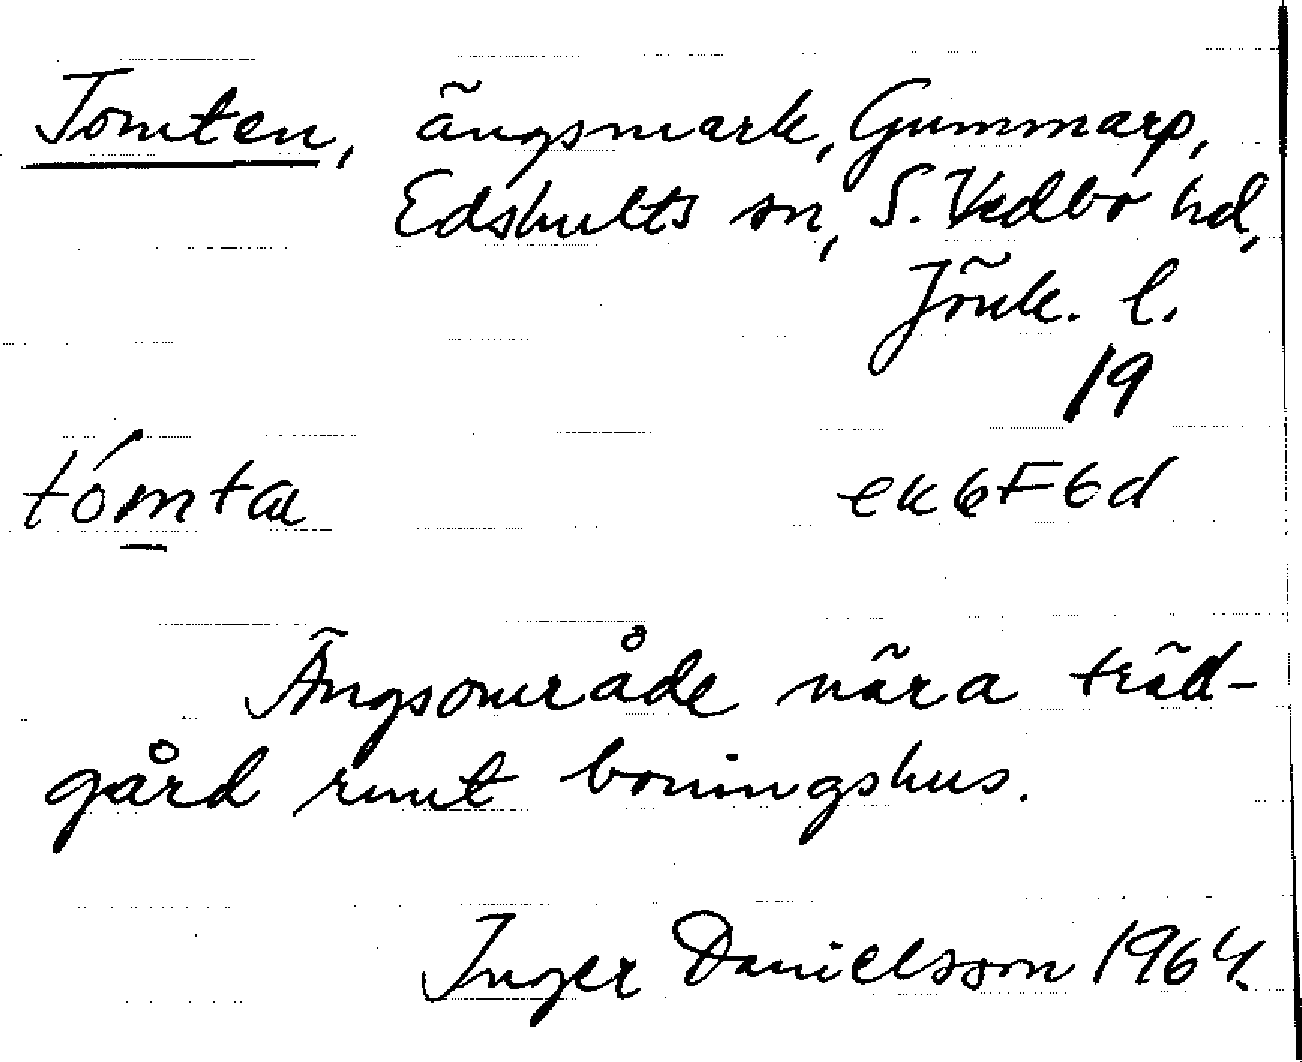 Tomten, ängsmark, Gummarp,
Edshults sn, S. Vedbo hd,
Jönk. l.
19
tómta
ek6F6d
Ängsområde nära träd-
gård runt boningshus.
Inger Danielsson 1964.